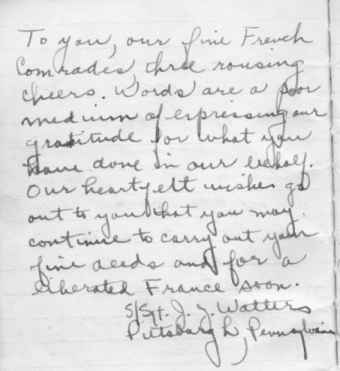 To you, our fine French
Comrades, three rousing
cheers. Words are a poor
medium of expressing our
gratitude for what you
have done in our behalf.
Our heartfelt wishes go
out to you that you may
continue to carry out your
fine deeds and for a
liberated France soon.
S/Sgt. J. J. Watters
Pittsburgh, Pennsylvania